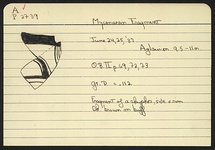 A
P 2739
Mycenaean Fragment
June 24, 25, '37
A 9.5-11m
O.B. II p. 69, 72, 73
gr. D = .112
Fragment of a skyphos, side + rim
Dk. brown on buff